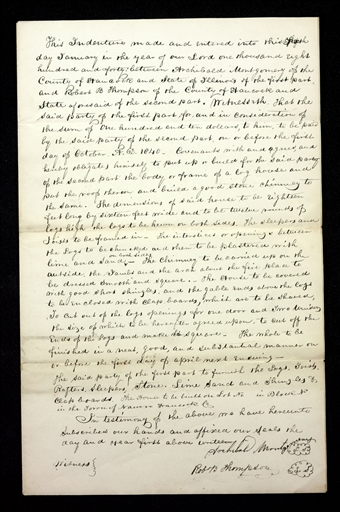 This Indenture made and entered into this
day January in the year of our Lord one thousand eight
hundred and forty between Archibald Montgomery of the
County of Hancock and State of Illinois of the first part
and Robert B Thompson of the County of Hancock and
State aforesaid of the second part. Witnesseth That the
said party of the first part for and in consideration of
the sum of One hundred and ten dollars to him, to be paid
by the said party of the second part on or before the first
day of October A.D. 1840. Covenants with and agrees, and
hereby obligates himself to put up or build for the said party
of the second part the body or frame of a log house and
put the roof thereon and build a good stone chimney to
the same. The dimensions of said house to be Eighteen
feet long by sixteen feet wide and to be twelve rounds of
logs high the logs to be hewn on both sides. The sleepers and
Joists to be framed in. The interstices or openings between
the logs to be chinked and then to be plastered with
on both sides
lime and sand. The chimney to be carried up on the
outside, the Jambs and the arch above the fire place to
be dressed smooth and square. The House to be covered
with good short shingles, and the gable ends above the logs
to be inclosed with clap boards, which are to be shaved,
To cut out of the logs openings for one door and two windows
the size of which to be hereafter agreed upon, to cut off the
ends of the logs and make it square. The whole to be
finished in a neat, good, and substantial manner on
or before the first day of April next ensuing
The said party of the first part to furnish the Logs, Joists,
Rafters, Sleepers, Stone Lime Sand and Shingles &
Clapboards. The House to be built on Lot No in Block No
in the Town of Nauvoo Hancock Co
In testimony of the above we have hereunto
Subscribed our hands and affixed our Seals the
day and year first above written
Archibald
Witness
Rob. B Thompson